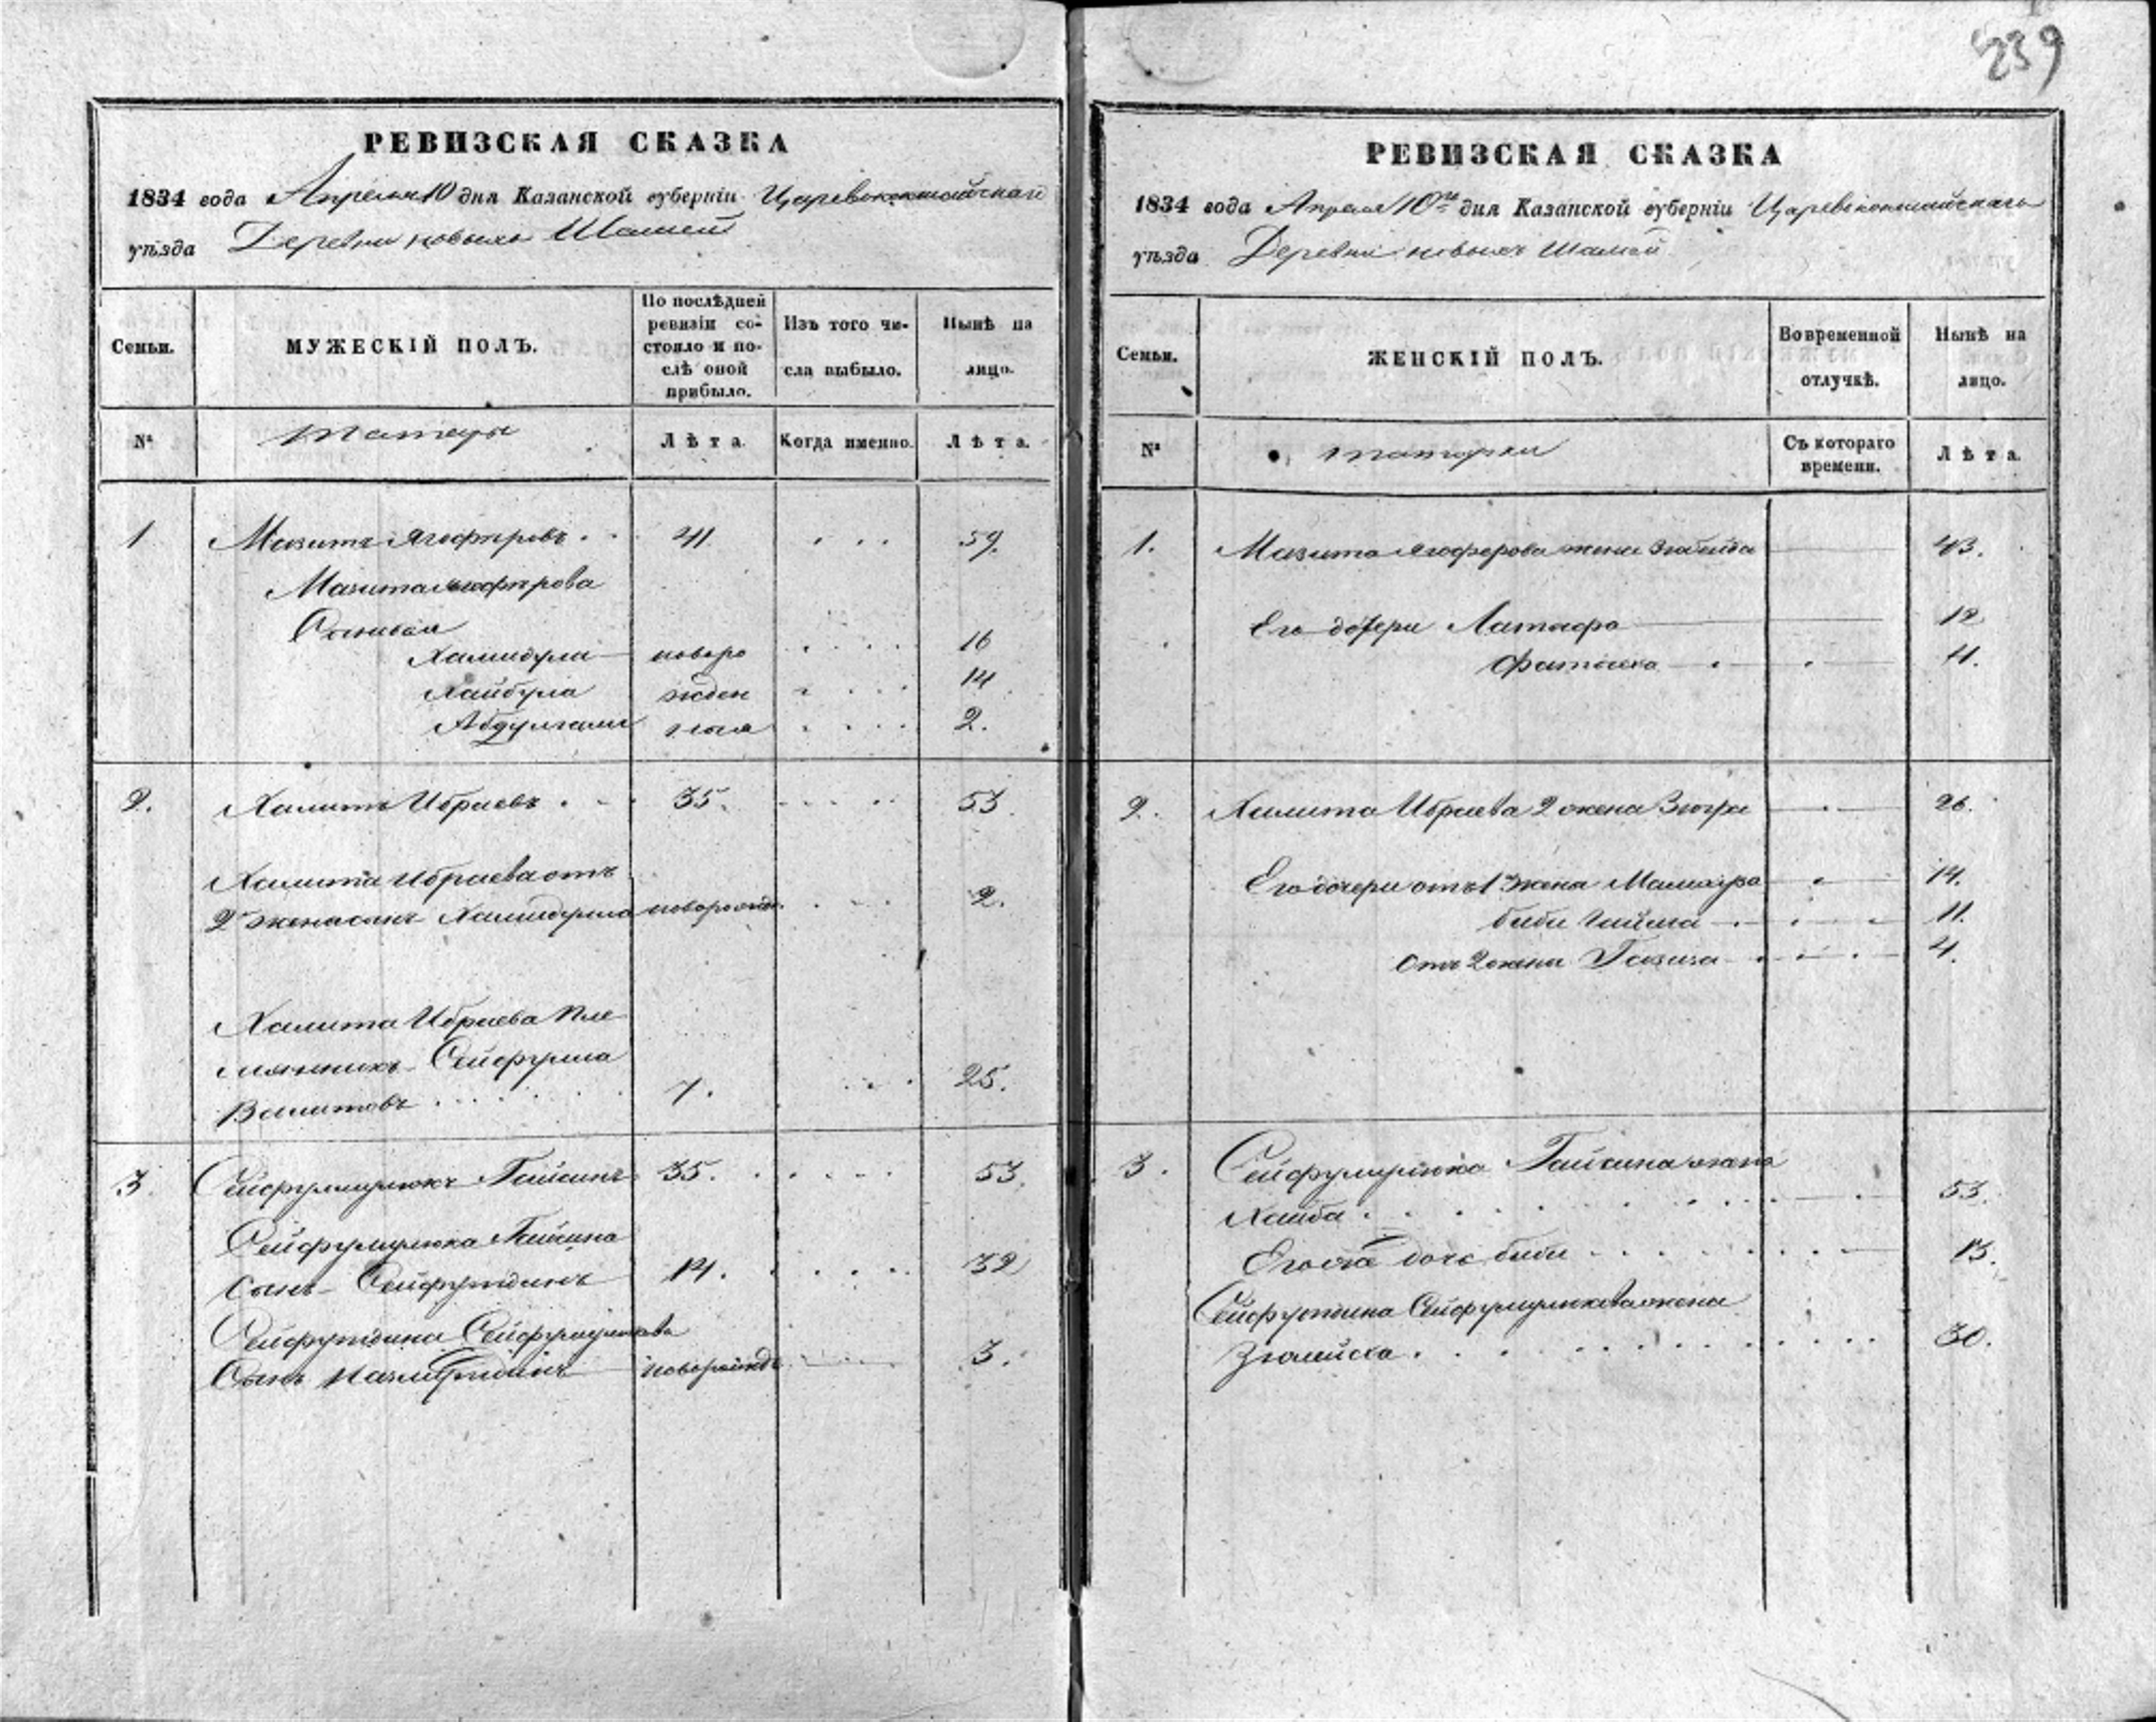 239
РЕВИЗСКАЯ СКАЗКА
1834 года Апреля 10 дня Казанской губерніи Царевококшайскаго
уѣзда Деревни новыхъ Шашей
Семьи.
МУЖЕСКІЙ ПОЛЪ.
По послѣдней
ревизіи со-
стояло и по-
слѣ оной
прибыло.
Изъ того чи-
сла выбыло.
Нынѣ на
лицо.
№
татары
Лѣта.
Когда именно.
Лѣта.
1 Мазитъ Ягофѣровъ 41 59.
Мазита Ягофѣрова
Сыновья
Хамидула новоро 16
Хайбула жден 14
ныя 2.
2. Халитъ Ибраевъ 35. 53.
Халита Ибраева отъ
2й жены сынъ Хамидулла новорожд. 2.
Халита Ибраева пле
мянникъ Сейфулла
Валитовъ 7. 25.
3 Сейфулмулюкъ Гайсинъ 35. 53.
Сейфулмулюка Гайсина
сынъ Сейфутдинъ 14. 32
Сейфутдина Сейфулмулюкова
Сынъ новорожд. 3.
РЕВИЗСКАЯ СКАЗКА
1834 года Апреля 10го дня Казанской губерніи Царевококшайскаго
уѣзда Деревни новыхъ Шашей
Семьи.
ЖЕНСКІЙ ПОЛЪ.
Во временной
отлучкѣ.
Нынѣ на
лицо.
№
татарки
Съ котораго
времени.
Лѣта.
1. Мазита Ягоферова жена Зюбейда 43.
Его дочери Латафа 12
11.
2. Халита Ибраева 2 жена Зюгра 26.
Его дочери отъ 1 жены 14.
биби 11.
отъ 2 жены 4.
3. Сейфулмулюка Гайсина жена
53.
дочь биби 13.
Сейфутдина Сейфулмулюкова жена
30.